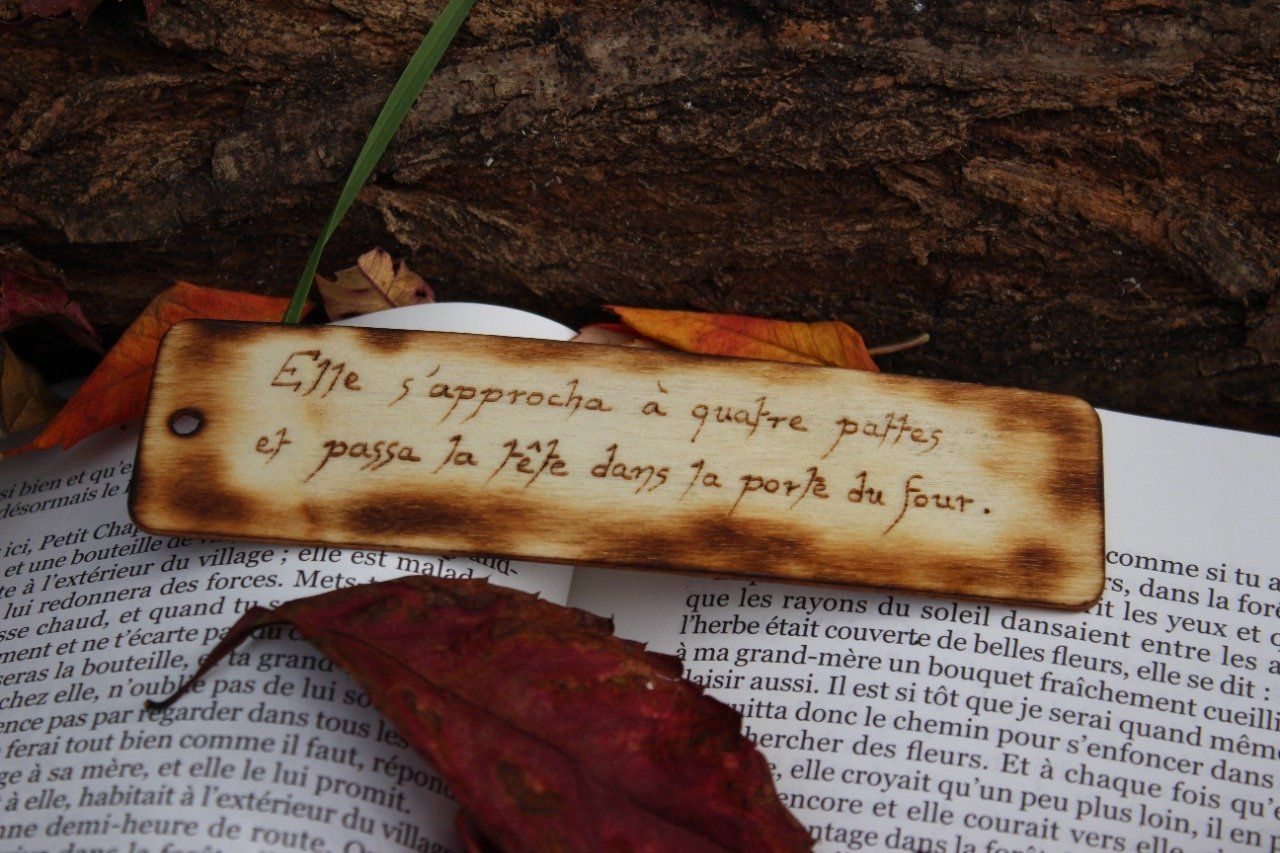 Elle s'approcha à quatre pattes
et passa la tête dans la porte du four.
si bien et qu'e
désormais le
ici, Petit Chap
et une bouteille de
te à l'extérieur du village ; elle est malad and-
lui redonnera des forces. Mets-t
sse chaud, et quand tu s
ment et ne t'écarte pas du c
seras la bouteille, et ta grand
chez elle, n'oublie pas de lui so
ence pas par regarder dans tous les
ferai tout bien comme il faut, répond
ge à sa mère, et elle le lui promit.
à elle, habitait à l'extérieur du villag
nne demi-heure de route.
comme si tu a
rs, dans la forê
it les yeux et q
que les rayons du soleil dansaient entre les a
l'herbe était couverte de belles fleurs, elle se dit :
à ma grand-mère un bouquet fraîchement cueilli
laisir aussi. Il est si tôt que je serai quand même
uitta donc le chemin pour s'enfoncer dans
hercher des fleurs. Et à chaque fois qu'e
, elle croyait qu'un peu plus loin, il en p
encore et elle courait vers elle
ntage dans la forê